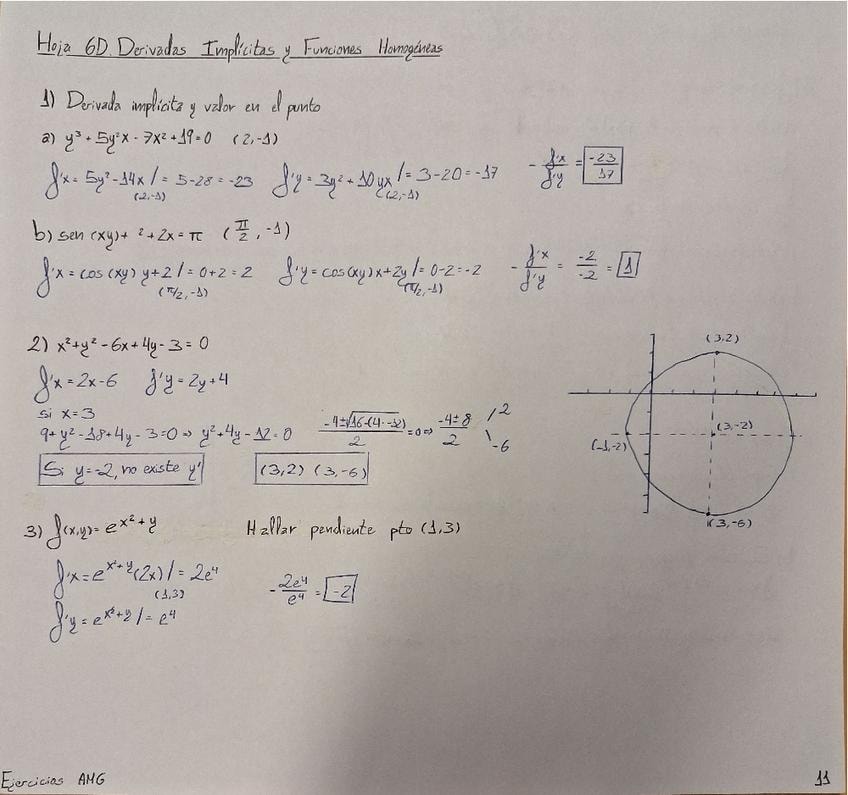 Hoja 6D. Derivadas Implícitas y Funciones Homogéneas
1) Derivada implícita y valor en el punto
a) y³ + 5y²x - 7x² + 19 = 0 (2, -1)
f'x = 5y² - 14x /(2,-1) = 5 - 28 = -23 f'y = 3y² + 10yx /(2,-1) = 3 - 20 = -17 - f'x/f'y = -23/17
b) sen (xy) + ² + 2x = π (π/2, -1)
f'x = cos (xy) y + 2 /(π/2, -1) = 0 + 2 = 2 f'y = cos(xy) x + 2y /(π/2, -1) = 0 - 2 = -2 - f'x/f'y = -2/-2 = 1
2) x² + y² - 6x + 4y - 3 = 0
f'x = 2x - 6 f'y = 2y + 4
si x = 3
9 + y² - 18 + 4y - 3 = 0 ⇒ y² + 4y - 12 = 0 -4±√16-(4·-12)/2 = 0 ⇒ -4±8/2 2 -6
Si y = -2, no existe y' (3,2) (3,-6)
(3,2)
(3,-2)
(-1,-2)
(3,-6)
3) f(x,y) = e^x²+y Hallar pendiente pto (1,3)
f'x = e^x²+y (2x) /(1,3) = 2e⁴ - 2e⁴/e⁴ = -2
f'y = e^x²+y / = e⁴
Ejercicios AMG
11